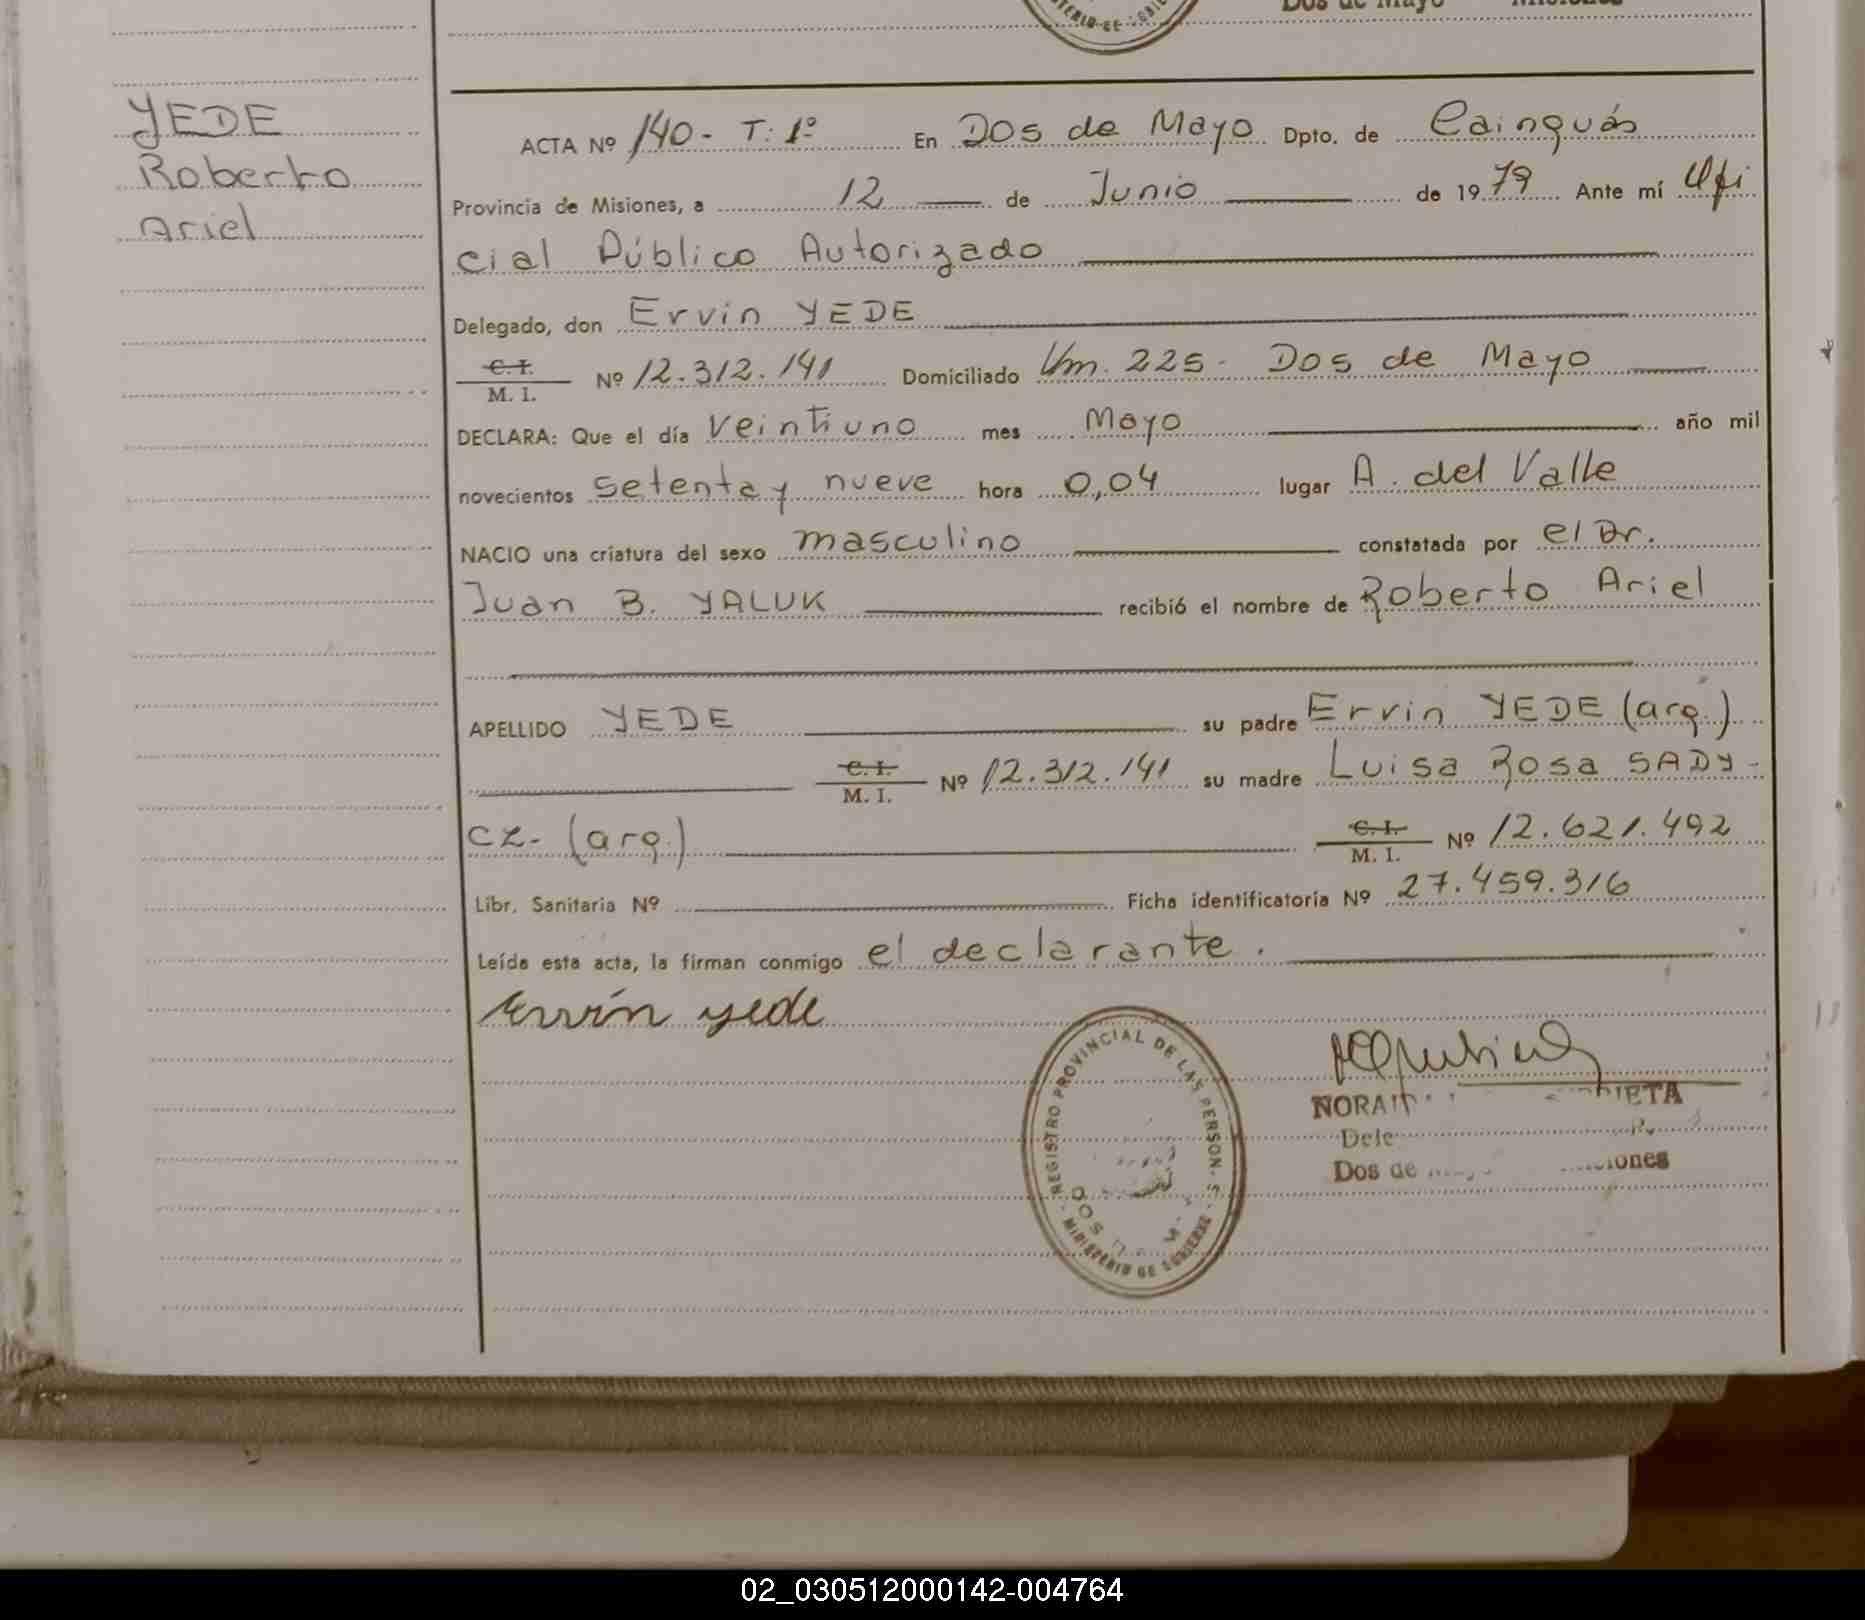 Dos de Mayo Misiones
YEDE
Roberto
Ariel
ACTA Nº 140 - T: 1º En Dos de Mayo Dpto. de Cainguás
Provincia de Misiones, a 12 de Junio de 1979 Ante mí Ofi
cial Público Autorizado
Delegado, don Ervin YEDE
C. I.
M. I. Nº 12.312.141 Domiciliado Km. 225 - Dos de Mayo
DECLARA: Que el día veintiuno mes Mayo año mil
novecientos setenta y nueve hora 0,04 lugar A. del Valle
NACIO una criatura del sexo masculino constatada por el Dr.
Juan B. YALUK recibió el nombre de Roberto Ariel
APELLIDO YEDE su padre Ervin YEDE (arg.)
C. I.
M. I. Nº 12.312.141 su madre Luisa Rosa SADY-
CZ- (arg.) C. I.
M. I. Nº 12.621.492
Libr. Sanitaria Nº Ficha identificatoria Nº 27.459.316
Leída esta acta, la firman conmigo el declarante.
Ervin yede
REGISTRO PROVINCIAL DE LAS PERSONAS
MINISTERIO DE GOBIERNO
Dos de
02_030512000142-004764